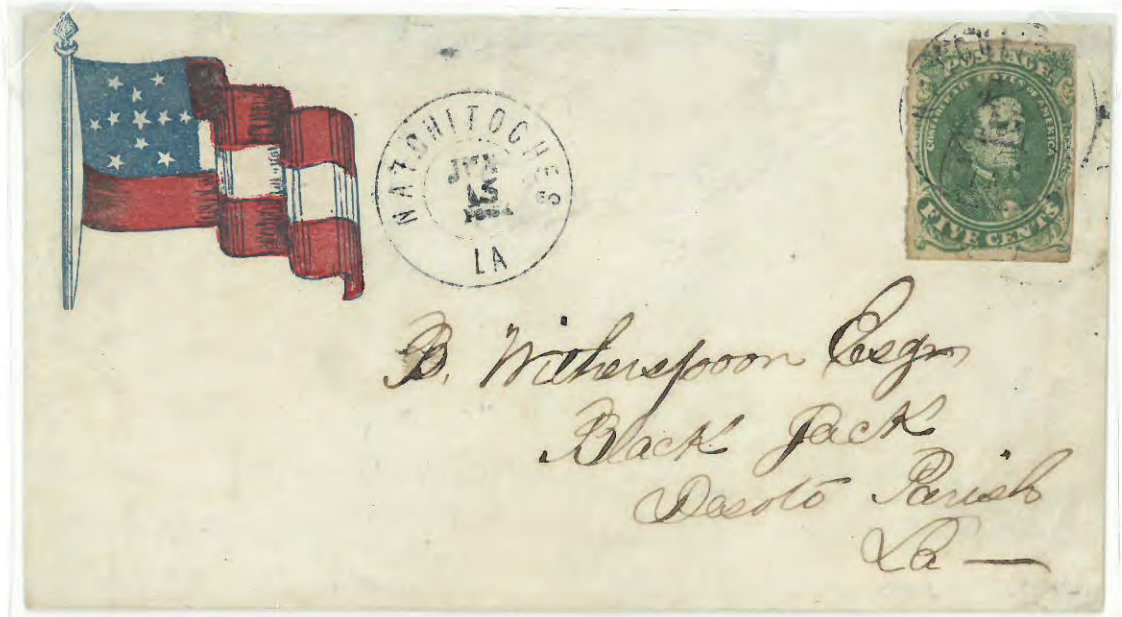 NATCHITOCHES
15
LA
POSTAGE
CONFEDERATE STATES OF AMERICA
FIVE CENTS
B. Witherspoon Esqr
Black Jack
Desoto Parish
La —